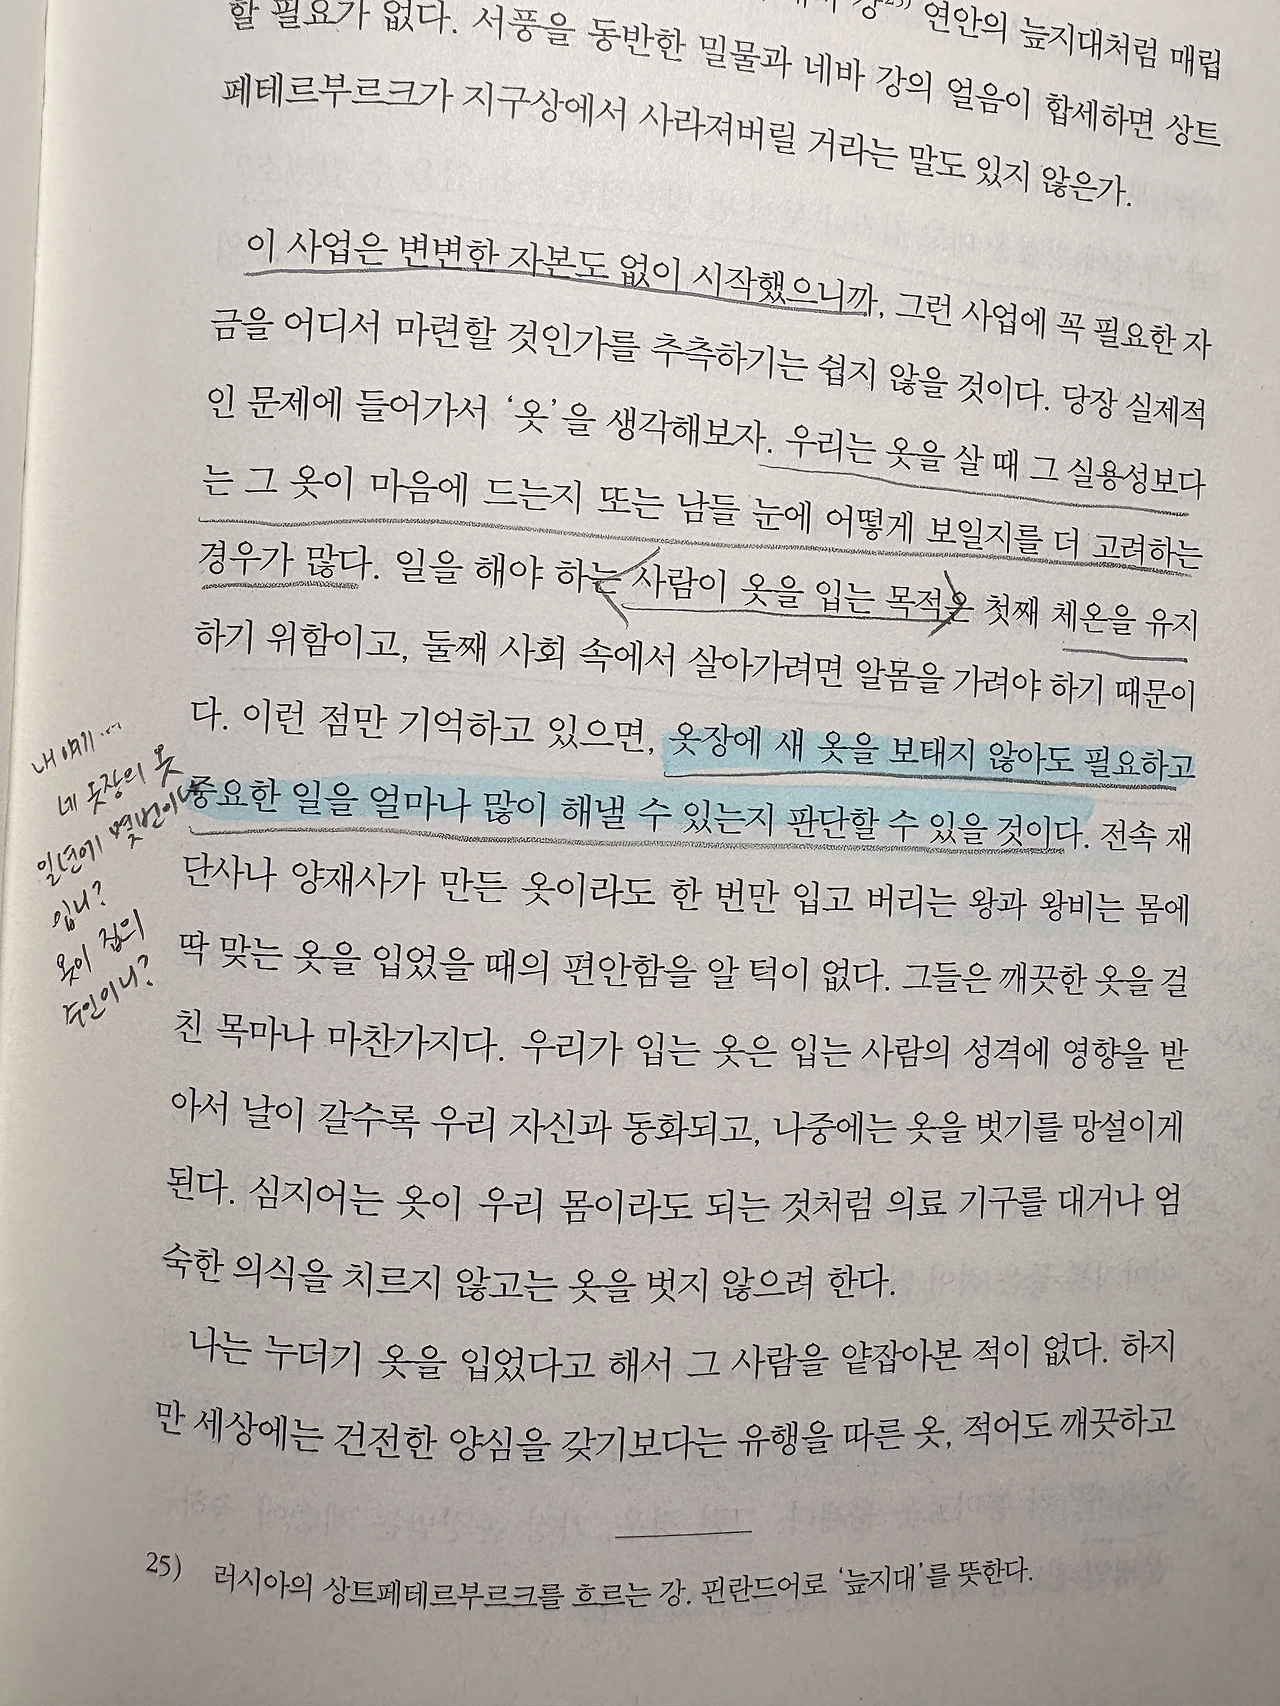 강25) 연안의 늪지대처럼 매립
할 필요가 없다. 서풍을 동반한 밀물과 네바 강의 얼음이 합세하면 상트
페테르부르크가 지구상에서 사라져버릴 거라는 말도 있지 않은가.
이 사업은 변변한 자본도 없이 시작했으니까, 그런 사업에 꼭 필요한 자
금을 어디서 마련할 것인가를 추측하기는 쉽지 않을 것이다. 당장 실제적
인 문제에 들어가서 ‘옷’을 생각해보자. 우리는 옷을 살 때 그 실용성보다
는 그 옷이 마음에 드는지 또는 남들 눈에 어떻게 보일지를 더 고려하는
경우가 많다. 일을 해야 하는 사람이 옷을 입는 목적은 첫째 체온을 유지
하기 위함이고, 둘째 사회 속에서 살아가려면 알몸을 가려야 하기 때문이
다. 이런 점만 기억하고 있으면, 옷장에 새 옷을 보태지 않아도 필요하고
중요한 일을 얼마나 많이 해낼 수 있는지 판단할 수 있을 것이다. 전속 재
단사나 양재사가 만든 옷이라도 한 번만 입고 버리는 왕과 왕비는 몸에
딱 맞는 옷을 입었을 때의 편안함을 알 턱이 없다. 그들은 깨끗한 옷을 걸
친 목마나 마찬가지다. 우리가 입는 옷은 입는 사람의 성격에 영향을 받
아서 날이 갈수록 우리 자신과 동화되고, 나중에는 옷을 벗기를 망설이게
된다. 심지어는 옷이 우리 몸이라도 되는 것처럼 의료 기구를 대거나 엄
숙한 의식을 치르지 않고는 옷을 벗지 않으려 한다.
나는 누더기 옷을 입었다고 해서 그 사람을 얕잡아본 적이 없다. 하지
만 세상에는 건전한 양심을 갖기보다는 유행을 따른 옷, 적어도 깨끗하고
내 얘기...
네 옷장의 옷
일년에 몇번이나
입니?
옷이 집의
주인이니?
25) 러시아의 상트페테르부르크를 흐르는 강. 핀란드어로 ‘늪지대’를 뜻한다.